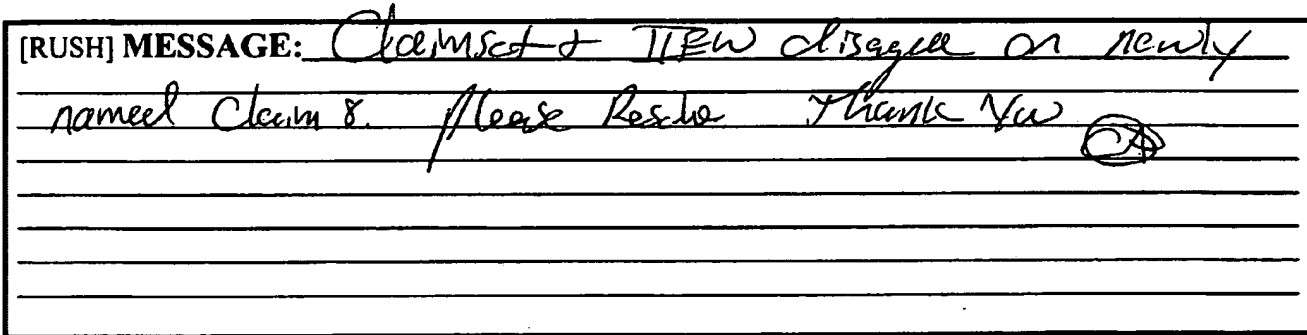 [RUSH] MESSAGE: Claimset + IIFW disagree on newly
named Claim 8. Please Resolve Thank You
CA